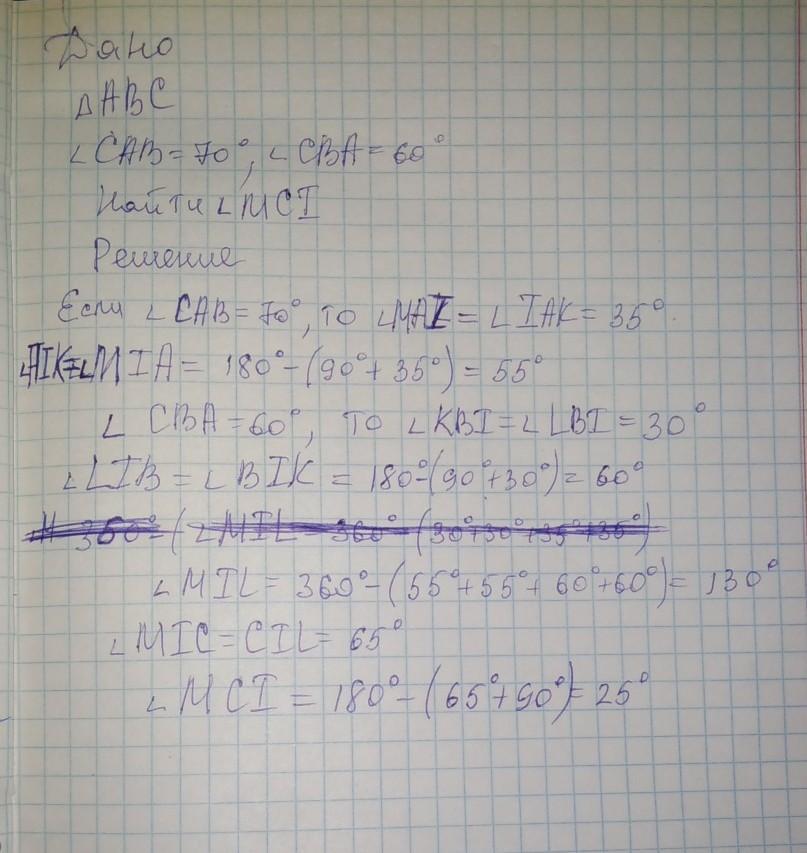 Дано
△ABC
∠CAB = 70°, ∠CBA = 60°
Найти ∠MCI
Решение
Если ∠CAB = 70°, то ∠MAI = ∠IAK = 35°
∠AIK=∠MIA = 180° - (90° + 35°) = 55°
∠CBA = 60°, то ∠KBI = ∠LBI = 30°
∠LIB = ∠BIK = 180° - (90° + 30°) = 60°
360° - (∠MIL = 360° - (30° + 30° + 35° + 35°)
∠MIL = 360° - (55° + 55° + 60° + 60°) = 130°
∠MIC = CIL = 65°
∠MCI = 180° - (65° + 90°) = 25°